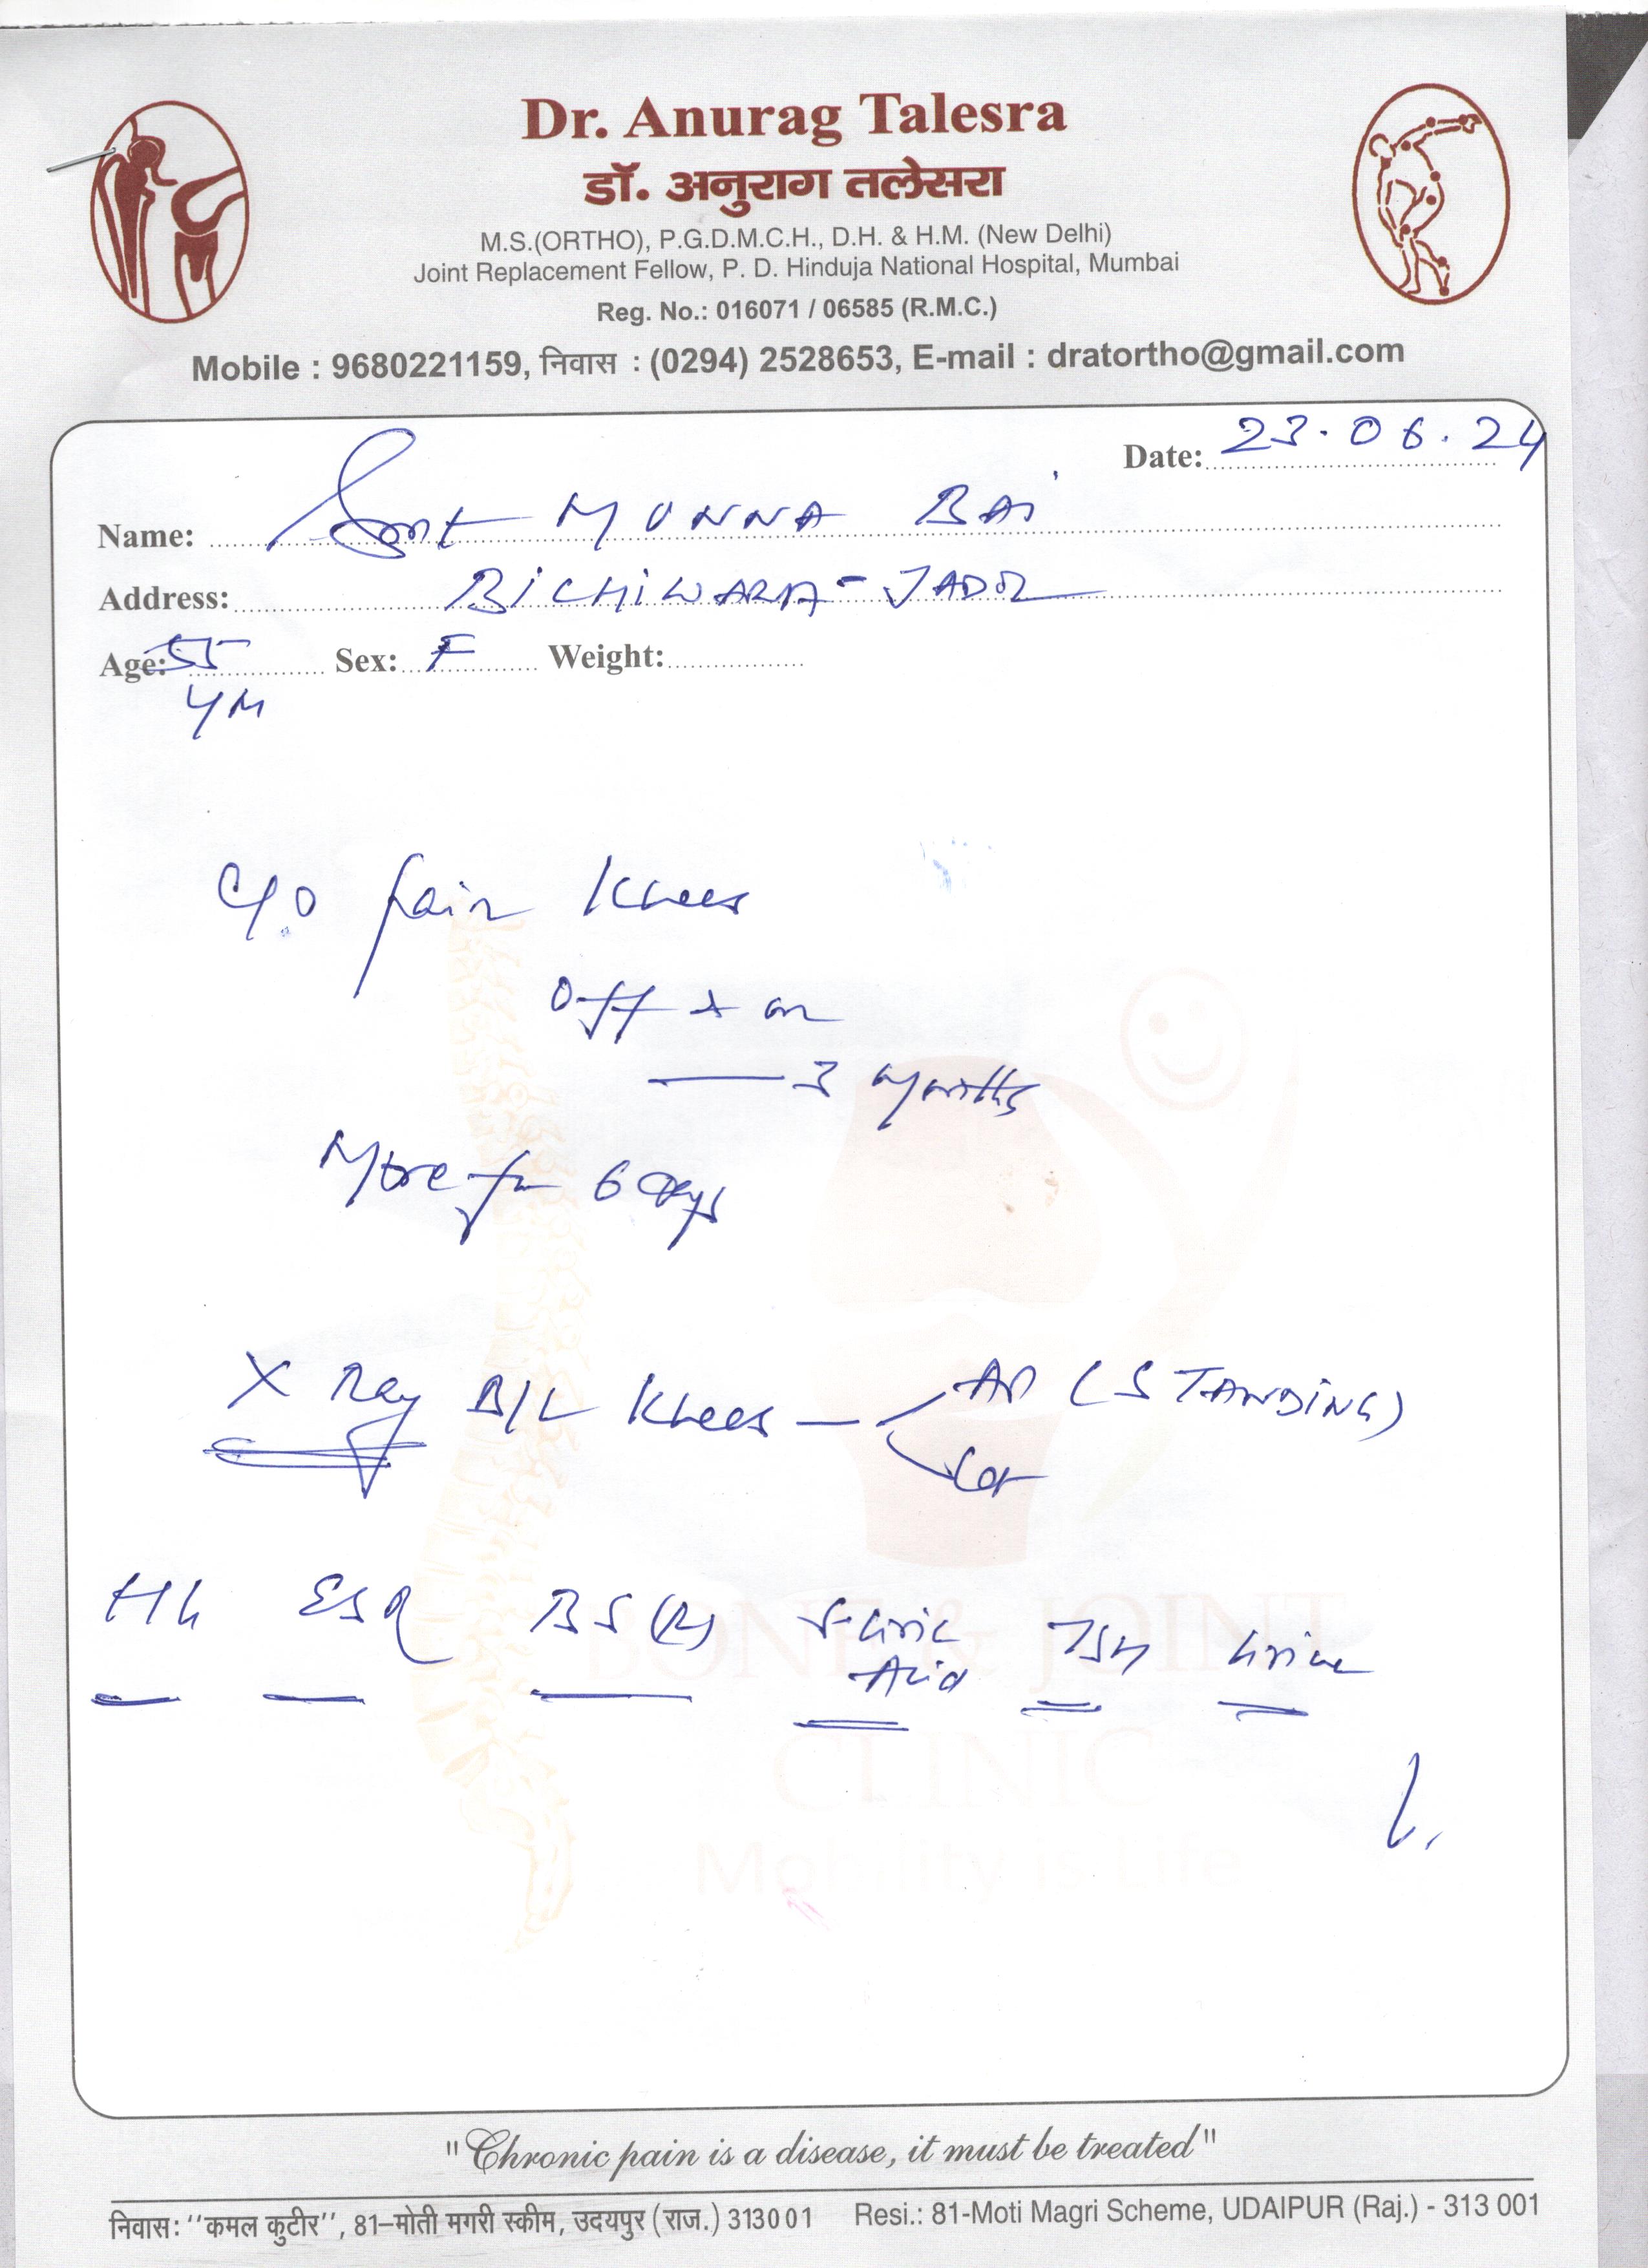 Dr. Anurag Talesra
डॉ. अनुराग तलेसरा
M.S.(ORTHO), P.G.D.M.C.H., D.H. & H.M. (New Delhi)
Joint Replacement Fellow, P. D. Hinduja National Hospital, Mumbai
Reg. No.: 016071 / 06585 (R.M.C.)
Mobile : 9680221159, निवास : (0294) 2528653, E-mail : dratortho@gmail.com
Date: 23.06.24
Name: Smt MUNNA BAI
Address: BICHIWARA-JADOL
Age: 55 Sex: F Weight:
C/o Pain Knees
Off & on
— 3 months
More for 6 days
X Ray B/L Knees — AP (STANDING)
Lat
Hb ESR BS (R) S. Uric TSH Urine
Acid
BONE & JOINT
CLINIC
Mobility is Life
"Chronic pain is a disease, it must be treated"
निवास: ''कमल कुटीर'', 81–मोती मगरी स्कीम, उदयपुर (राज.) 313001 Resi.: 81-Moti Magri Scheme, UDAIPUR (Raj.) - 313 001